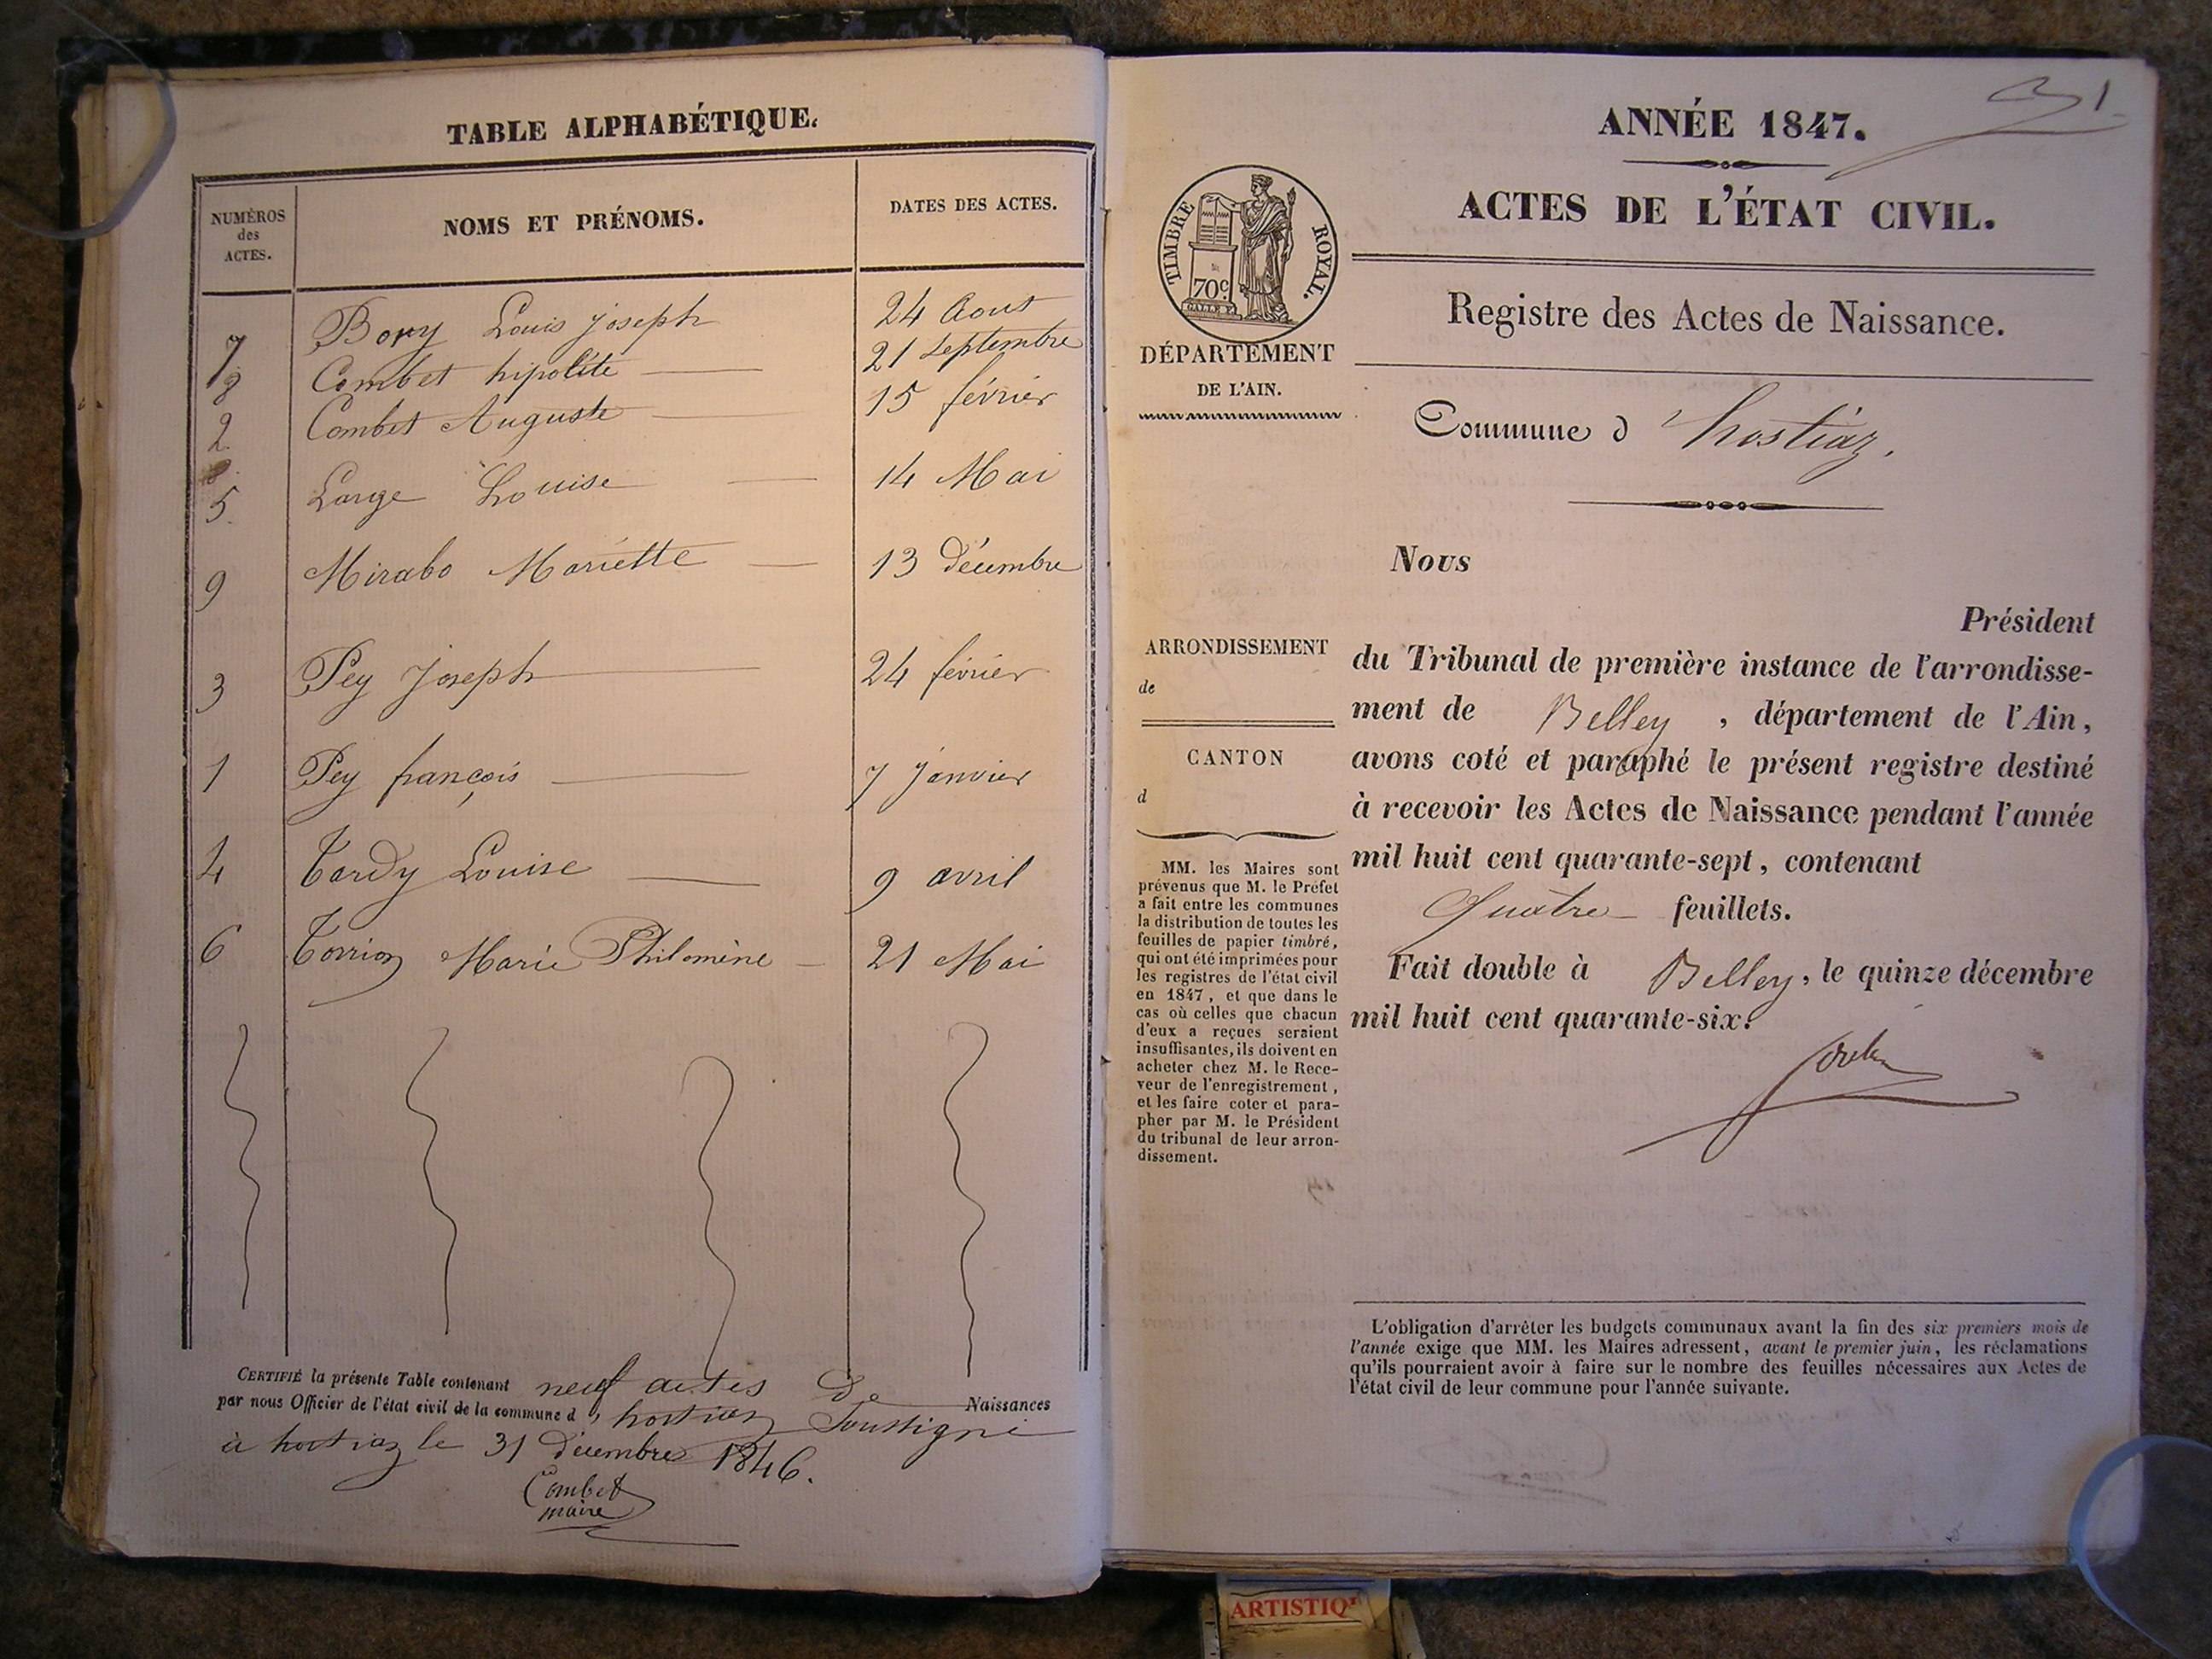 TABLE ALPHABÉTIQUE.
NUMÉROS
des
ACTES.
NOMS ET PRÉNOMS.
DATES DES ACTES.
7 Bory Louis joseph 24 Aout
8 Combet hipolite 21 septembre
2 Combet Auguste 15 février
5 Large Louise 14 Mai
9 Mirabo Mariette 13 décembre
3 Pey Joseph 24 février
1 Pey françois 7 janvier
4 Tardy Louise 9 avril
6 Torrion Marie Philomène 21 Mai
CERTIFIÉ la présente Table contenant neuf actes De Naissances
par nous Officier de l'état civil de la commune d'hostiaz Soussigné
à hostiaz le 31 décembre 1846.
Combet
maire
31
ANNÉE 1847.
ACTES DE L'ÉTAT CIVIL.
TIMBRE ROYAL.
70c
Registre des Actes de Naissance.
DÉPARTEMENT
DE L'AIN.
Commune d'hostiaz.
Nous
Président
du Tribunal de première instance de l'arrondisse-
ment de Belley, département de l'Ain,
avons coté et paraphé le présent registre destiné
à recevoir les Actes de Naissance pendant l'année
mil huit cent quarante-sept, contenant
Quatre feuillets.
Fait double à Belley, le quinze décembre
mil huit cent quarante-six.
ARRONDISSEMENT
de
CANTON
d
MM. les Maires sont
prévenus que M. le Préfet
a fait entre les communes
la distribution de toutes les
feuilles de papier timbré,
qui ont été imprimées pour
les registres de l'état civil
en 1847, et que dans le
cas où celles que chacun
d'eux a reçues seraient
insuffisantes, ils doivent en
acheter chez M. le Rece-
veur de l'enregistrement,
et les faire coter et para-
pher par M. le Président
du tribunal de leur arron-
dissement.
L'obligation d'arrêter les budgets communaux avant la fin des six premiers mois de
l'année exige que MM. les Maires adressent, avant le premier juin, les réclamations
qu'ils pourraient avoir à faire sur le nombre des feuilles nécessaires aux Actes de
l'état civil de leur commune pour l'année suivante.
ARTISTIQ